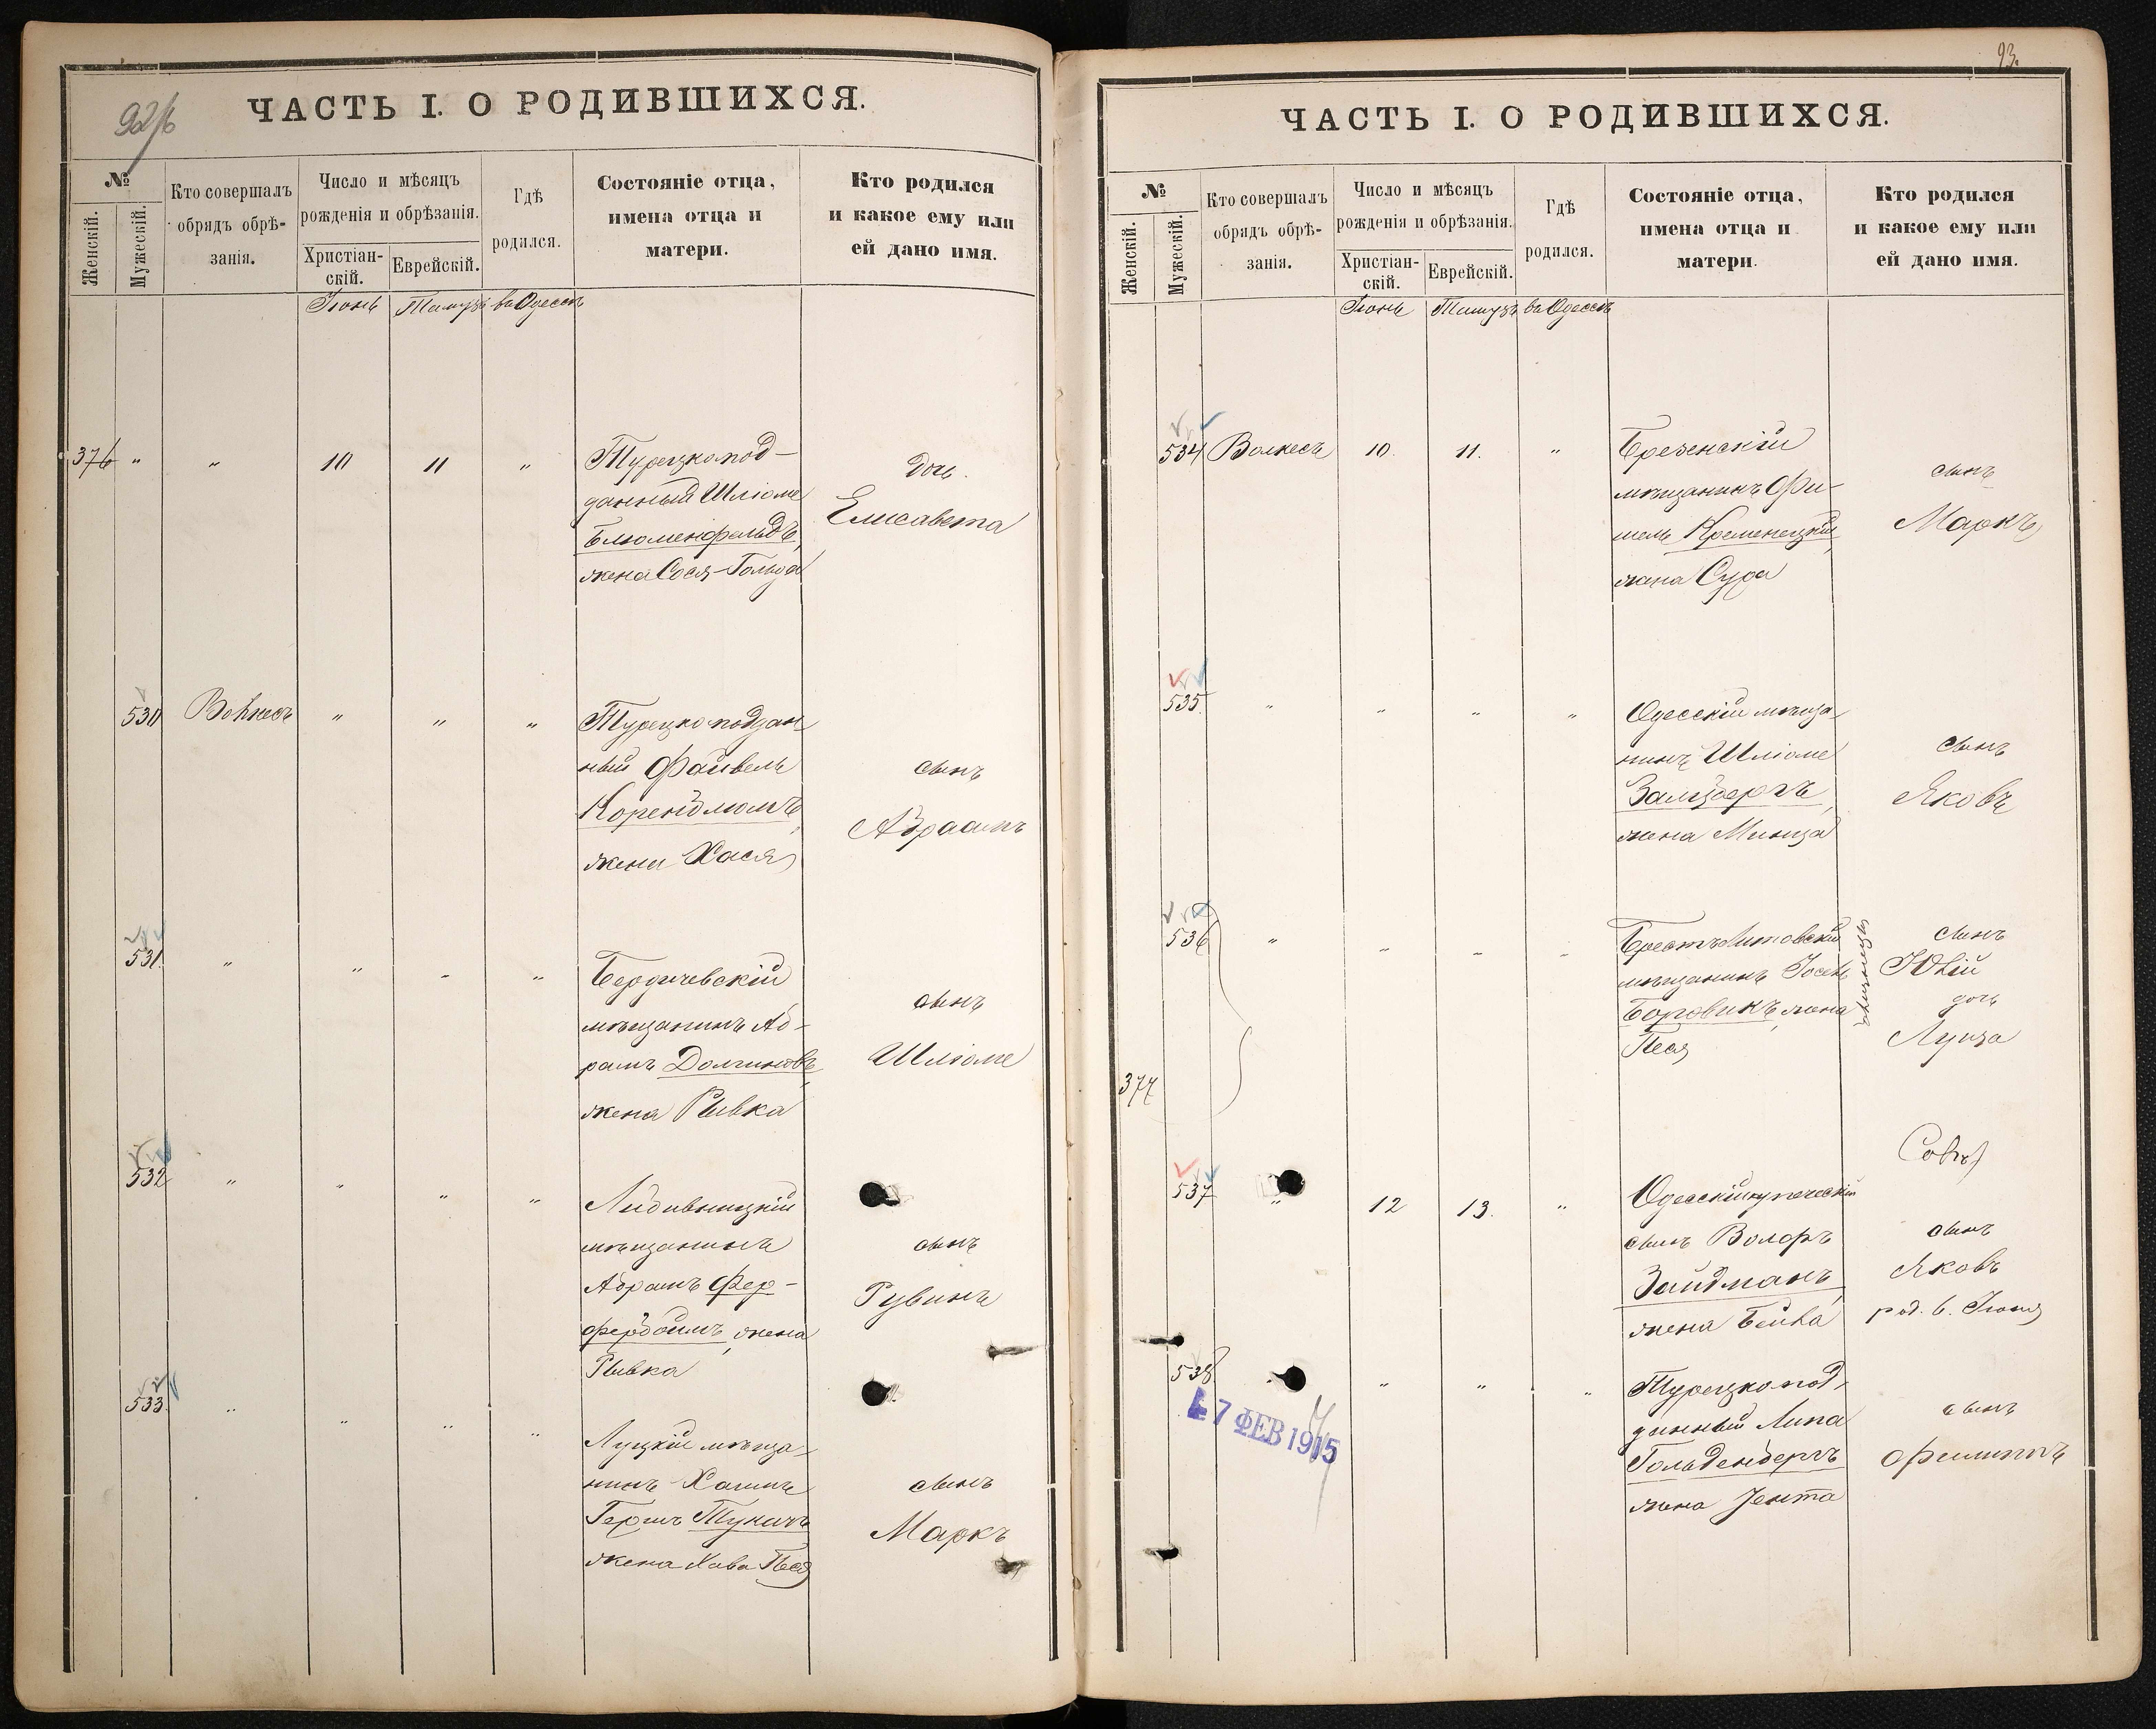 92/б
ЧАСТЬ I. О РОДИВШИХСЯ.
№
Женскій.
Мужескій.
Кто совершалъ
обрядъ обрѣ-
занія.
Число и мѣсяцъ
рожденія и обрѣзанія.
Христіан-
скій.
Еврейскій.
Гдѣ
родился.
Состояніе отца,
имена отца и
матери.
Кто родился
и какое ему или
ей дано имя.
Іюнь Тамузъ въ Одессѣ
376 " " 10 11 "
Турецкопод-
данный Шліоме
Блюменфельдъ,
жена Сося-Гольда
дочь
Елисавета
530 " " "
Турецкоподдан-
ный Файвель
Коренблюмъ,
жена Хася
сынъ
Абраамъ
531 " " " "
Бердичевскій
мѣщанинъ Аб-
рамъ Долгиновъ,
жена Ривка
сынъ
Шліоме
532 " " " "
мѣщанинъ
Абрамъ Фер-
фербоимъ, жена
Ривка
сынъ
Рувинъ
533 " " " "
Луцкій мѣща-
нинъ Хаимъ
Гершъ
жена Хава Песя
сынъ
Маркъ
93.
ЧАСТЬ I. О РОДИВШИХСЯ.
№
Женскій.
Мужескій.
Кто совершалъ
обрядъ обрѣ-
занія.
Число и мѣсяцъ
рожденія и обрѣзанія.
Христіан-
скій.
Еврейскій.
Гдѣ
родился.
Состояніе отца,
имена отца и
матери.
Кто родился
и какое ему или
ей дано имя.
Іюнь Тамузъ въ Одессѣ
534 10. 11. "
мѣщанинъ Фи-
шель Кременецкій,
жена Сура
сынъ
Маркъ
535 " " " "
Одесскій мѣща-
нинъ Шліоме
Залцбергъ,
жена Минца
сынъ
Яковъ
536 " " " "
Брестъ Литовскій
мѣщанинъ
Боровикъ, жена
Песя
близнецы
сынъ
Юлій
дочь
Луиза
377
537 " 12 13. "
Одесскій купеческій
сынъ Волфъ
Зайдманъ,
жена Бейла
сынъ
Яковъ
род. 6. Іюня
538 " " " "
Турецкопод-
данный Липа
Гольденбергъ
жена Іента
сынъ
Филиппъ
7 ФЕВ 1915